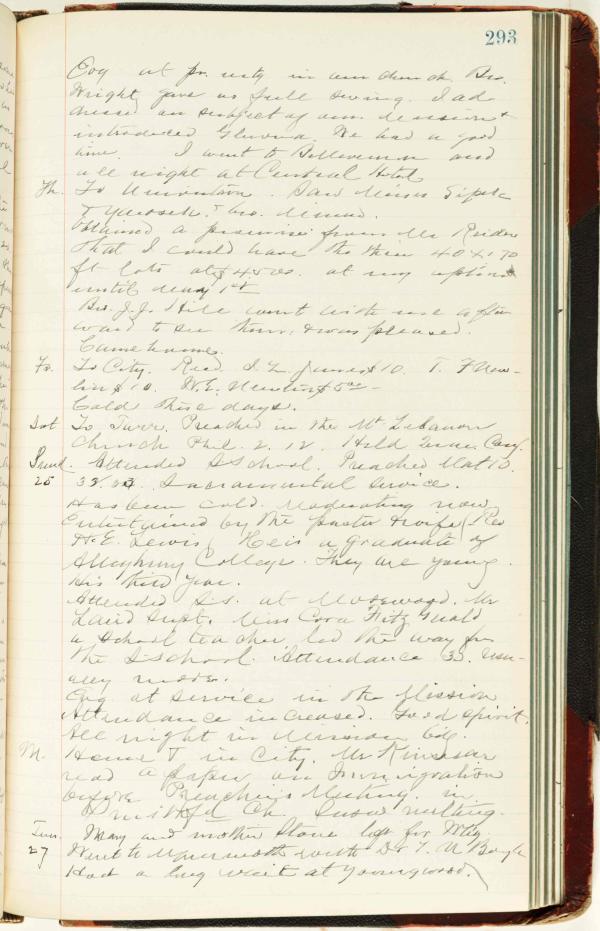 293
Evg at pr. mtg in our church. Bro.
Wright gave us full swing. I ad
dressed on subject of our decision &
introduced. We had a good
time. I went to and
all night at Central Hotel
Th. To Uniontown. Saw
& bro.
Obtained a promise from Mr
that I could have the three 40 x 170
ft lots at $4500. at my option
until May 1st
Bro. J. J. Hill went with me after
ward to see them, & was pleased.
Came home.
Fr. To City. Recd. $10. T. F New-
lin $10. W. E. $5.00 -
Cold these days.
Sat To. Preached in the Mt Lebanon
Church Phil. 2. 12. Held Quar. Conf.
Sund. Attended S School. Preached Mat 10.
25 32. 33. Sacramental Service.
Has been cold. Moderating now.
Entertained by the pastor & wife (Rev
H. E. Lewis) He is a graduate of
Allegheny College. They are young.
His third year.
Attended S.S. at. Mr
Laird Supt. Miss Cora Fitz Gerald
a school teacher, led the way for
the S School. Attendance 33. Usu-
ally more.
Evg. at service in the Mission
Attendance increased. Good spirit.
All night in Mission Bdg.
M. Home T in City. Mr Kinsear
read a paper on Immigration
before Preachers Meeting in
Smithfd Ch. Snow melting.
Tues. Mary and mother Stone left for
27 Went to with Dr T. N Boyle
Had a long wait at Youngwood.